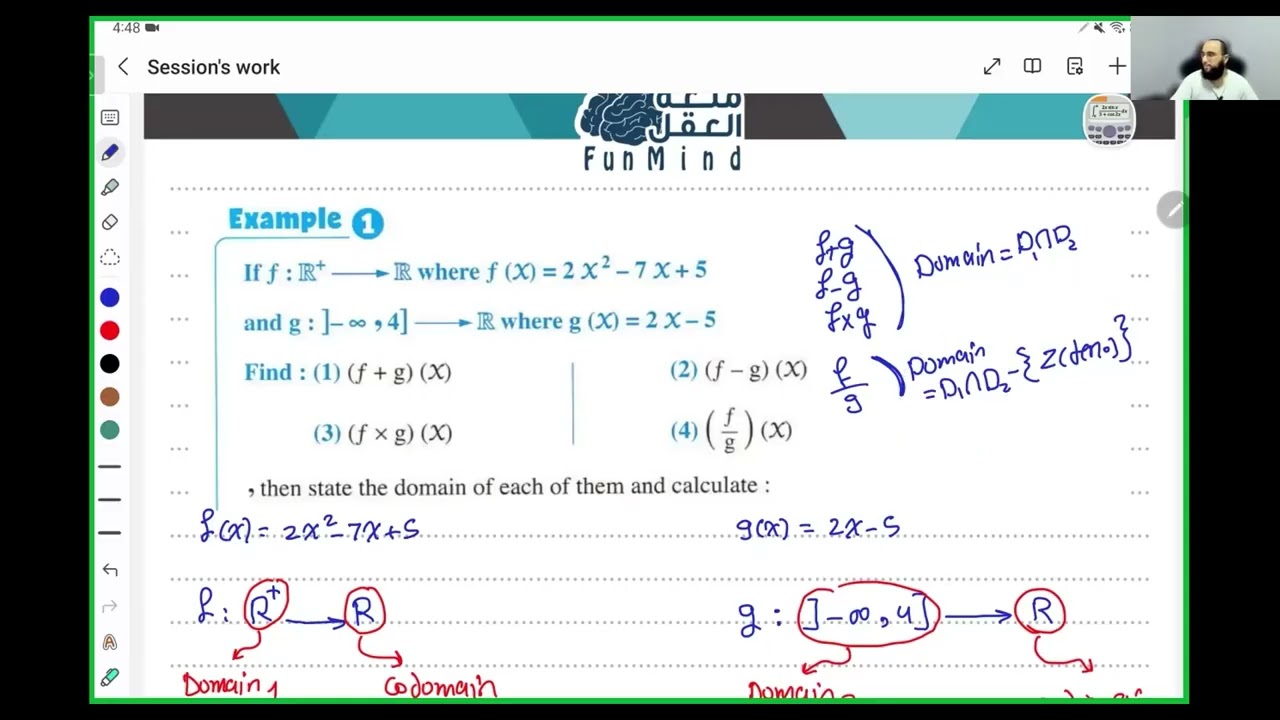 4:48
Session's work
متعة
العقل
FunMind
Example 1
If f : ℝ⁺ ⟶ ℝ where f (X) = 2 X² – 7 X + 5
and g : ]– ∞ , 4] ⟶ ℝ where g (X) = 2 X – 5
Find : (1) (f + g) (X)
(2) (f – g) (X)
(3) (f × g) (X)
(4) (f/g) (X)
, then state the domain of each of them and calculate :
f+g
f-g
f×g
Domain = D₁∩D₂
f/g
Domain
= D₁∩D₂ - {Z(den.)}
f(x) = 2x² - 7x + 5
g(x) = 2x - 5
f : R⁺ ⟶ R
g : ]-∞, 4] ⟶ R
Domain 1
Codomain
Domain